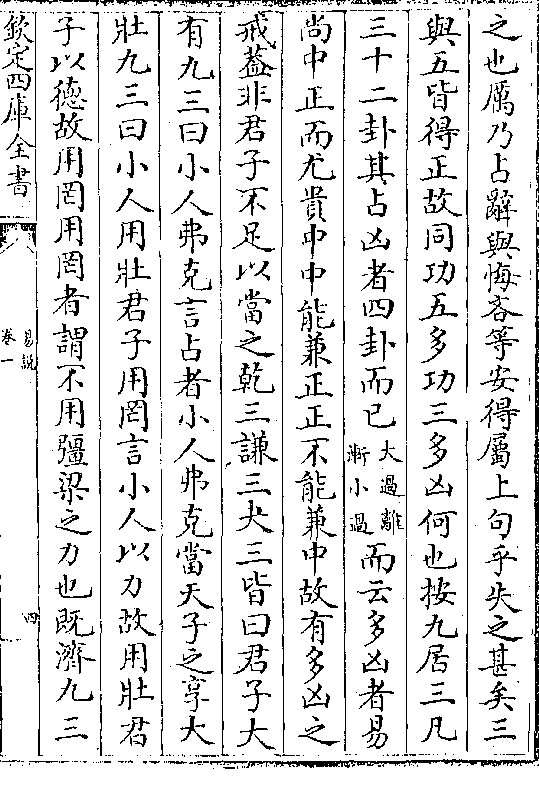 之也厲乃占辭與悔吝等安得屬上句乎失之甚矣三
與五皆得正故同功五多功三多凶何也按九居三凡
三十二卦其占凶者四卦而已大過離漸小過而云多凶者易
尚中正而尤貴中中能兼正正不能兼中故有多凶之
戒葢非君子不足以當之乾三謙三夬三皆曰君子大
有九三曰小人弗克言占者小人弗克當天子之享大
壯九三曰小人用壯君子用罔言小人以力故用壯君
子以德故用罔用罔者謂不用彊梁之力也既濟九三
欽定四庫全書
易說
卷一
四